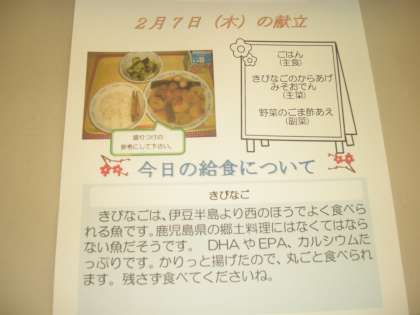 2月7日（木）の献立
ごはん
（主食）
きびなごのからあげ
みそおでん
（主菜）
野菜のごま酢あえ
（副菜）
盛りつけの
参考にして下さい。
今日の給食について
きびなご
きびなごは、伊豆半島より西のほうでよく食べら
れる魚です。鹿児島県の郷土料理にはなくてはなら
ない魚だそうです。 DHAやEPA、カルシウムた
っぷりです。かりっと揚げたので、丸ごと食べられ
ます。 残さず食べてくださいね。